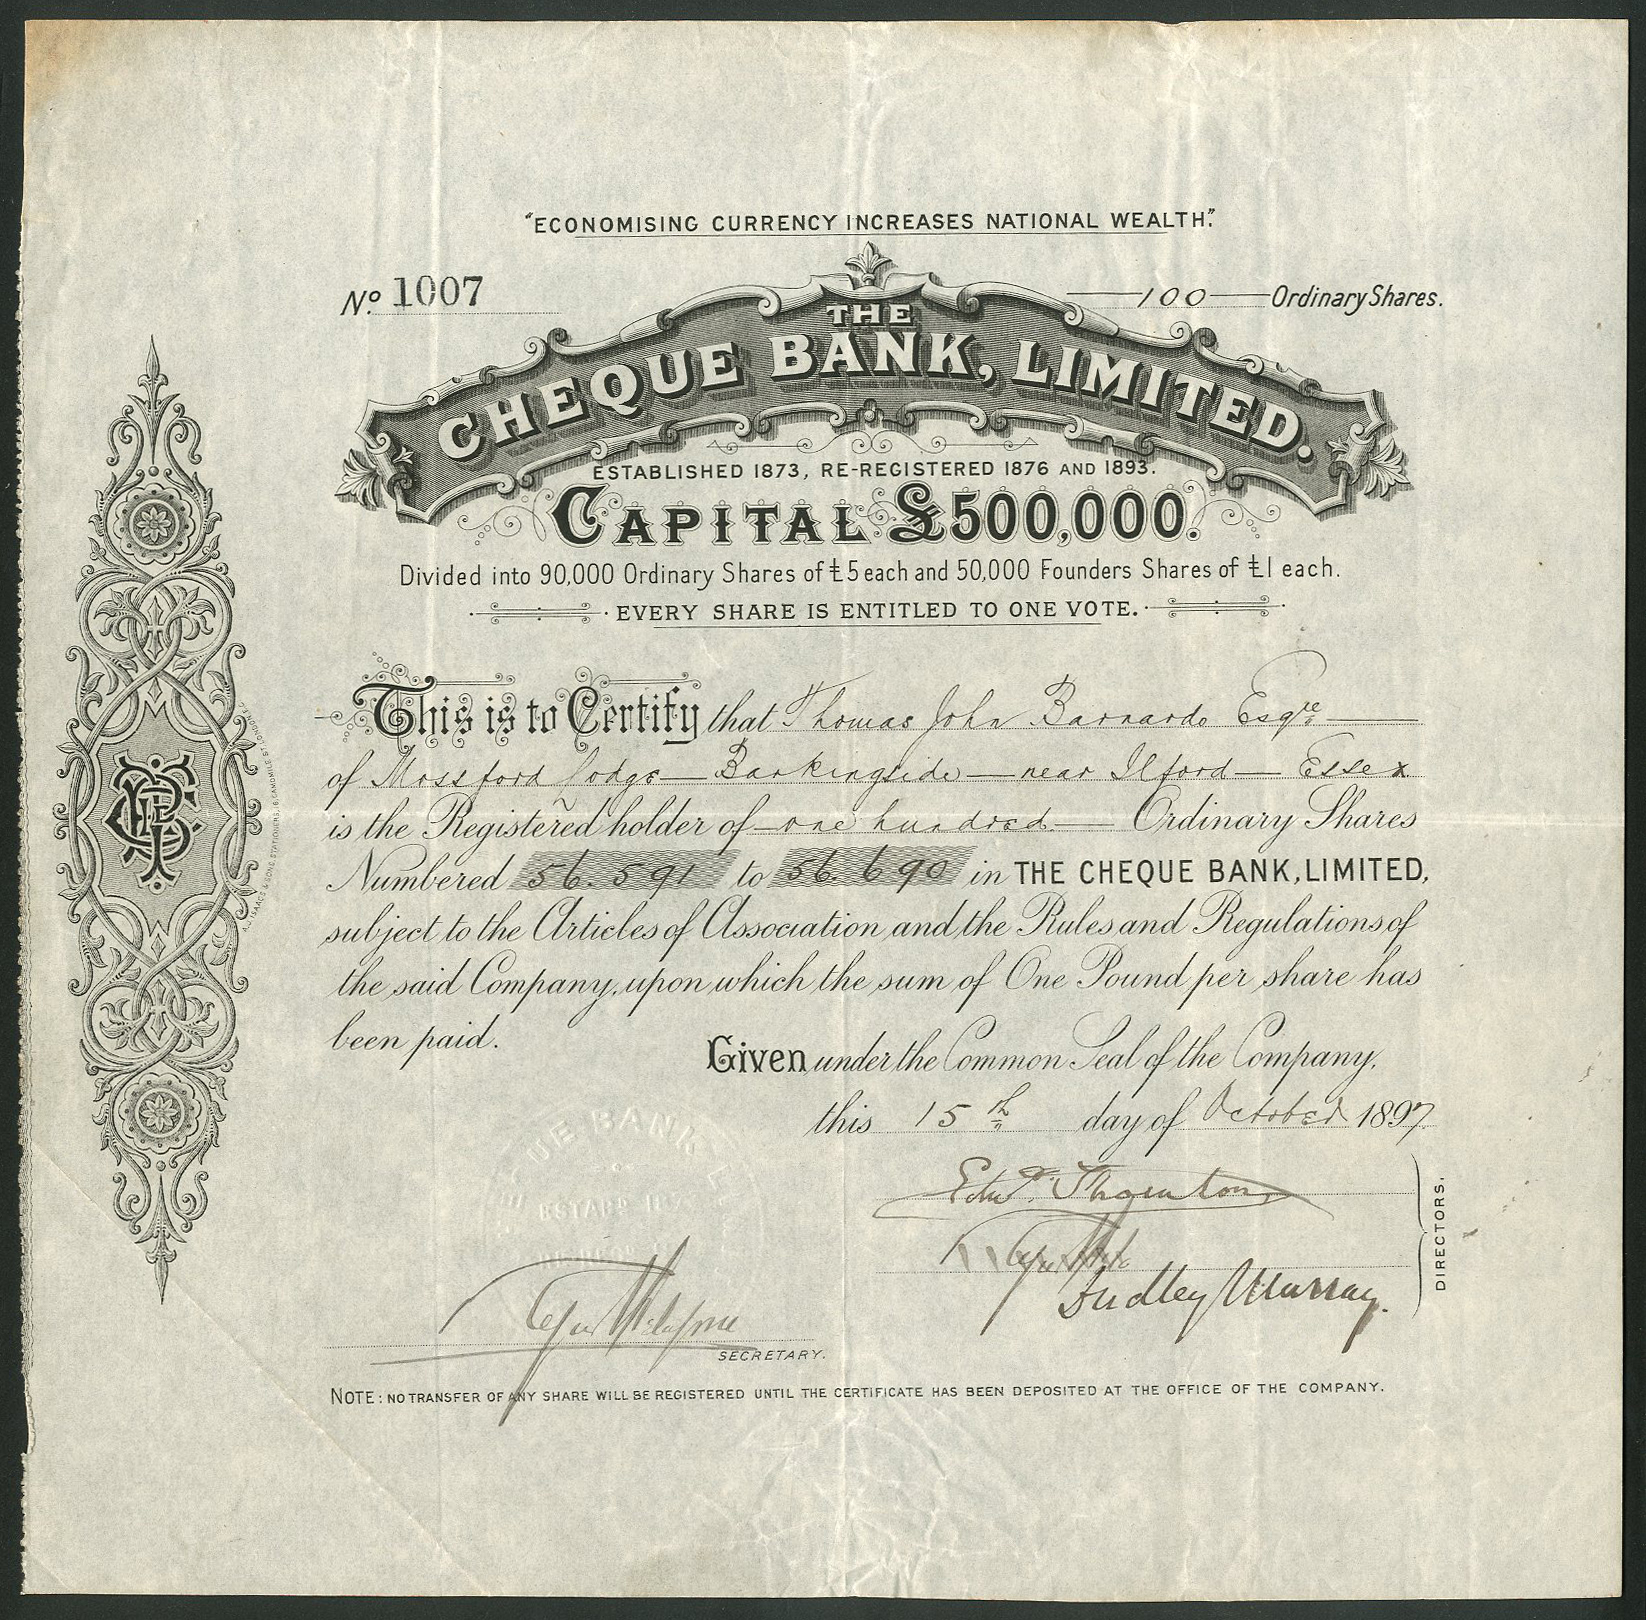 "ECONOMISING CURRENCY INCREASES NATIONAL WEALTH".
No. 1007
100 Ordinary Shares.
THE
CHEQUE BANK, LIMITED.
ESTABLISHED 1873, RE-REGISTERED 1876 AND 1893.
CAPITAL £500,000.
Divided into 90,000 Ordinary Shares of £5 each and 50,000 Founders Shares of £1 each.
EVERY SHARE IS ENTITLED TO ONE VOTE.
This is to Certify that Thomas John Barnardo Esqre
of Mossford Lodge Barkingside near Ilford Essex
is the Registered holder of one hundred Ordinary Shares
Numbered 56.591 to 56.690 in THE CHEQUE BANK, LIMITED,
subject to the Articles of Association and the Rules and Regulations of
the said Company, upon which the sum of One Pound per share has
been paid.
Given under the Common Seal of the Company,
this 15th day of October 1897
Edwd. Thornton
Dudley Murray.
DIRECTORS.
SECRETARY.
NOTE: NO TRANSFER OF ANY SHARE WILL BE REGISTERED UNTIL THE CERTIFICATE HAS BEEN DEPOSITED AT THE OFFICE OF THE COMPANY.